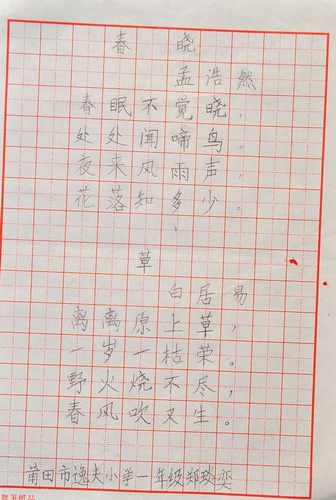 春晓
孟浩然
春眠不觉晓，
处处闻啼鸟。
夜来风雨声，
花落知多少。
草
白居易
离离原上草，
一岁一枯荣。
野火烧不尽，
春风吹又生。
莆田市逸夫小学一年级郑琰奕